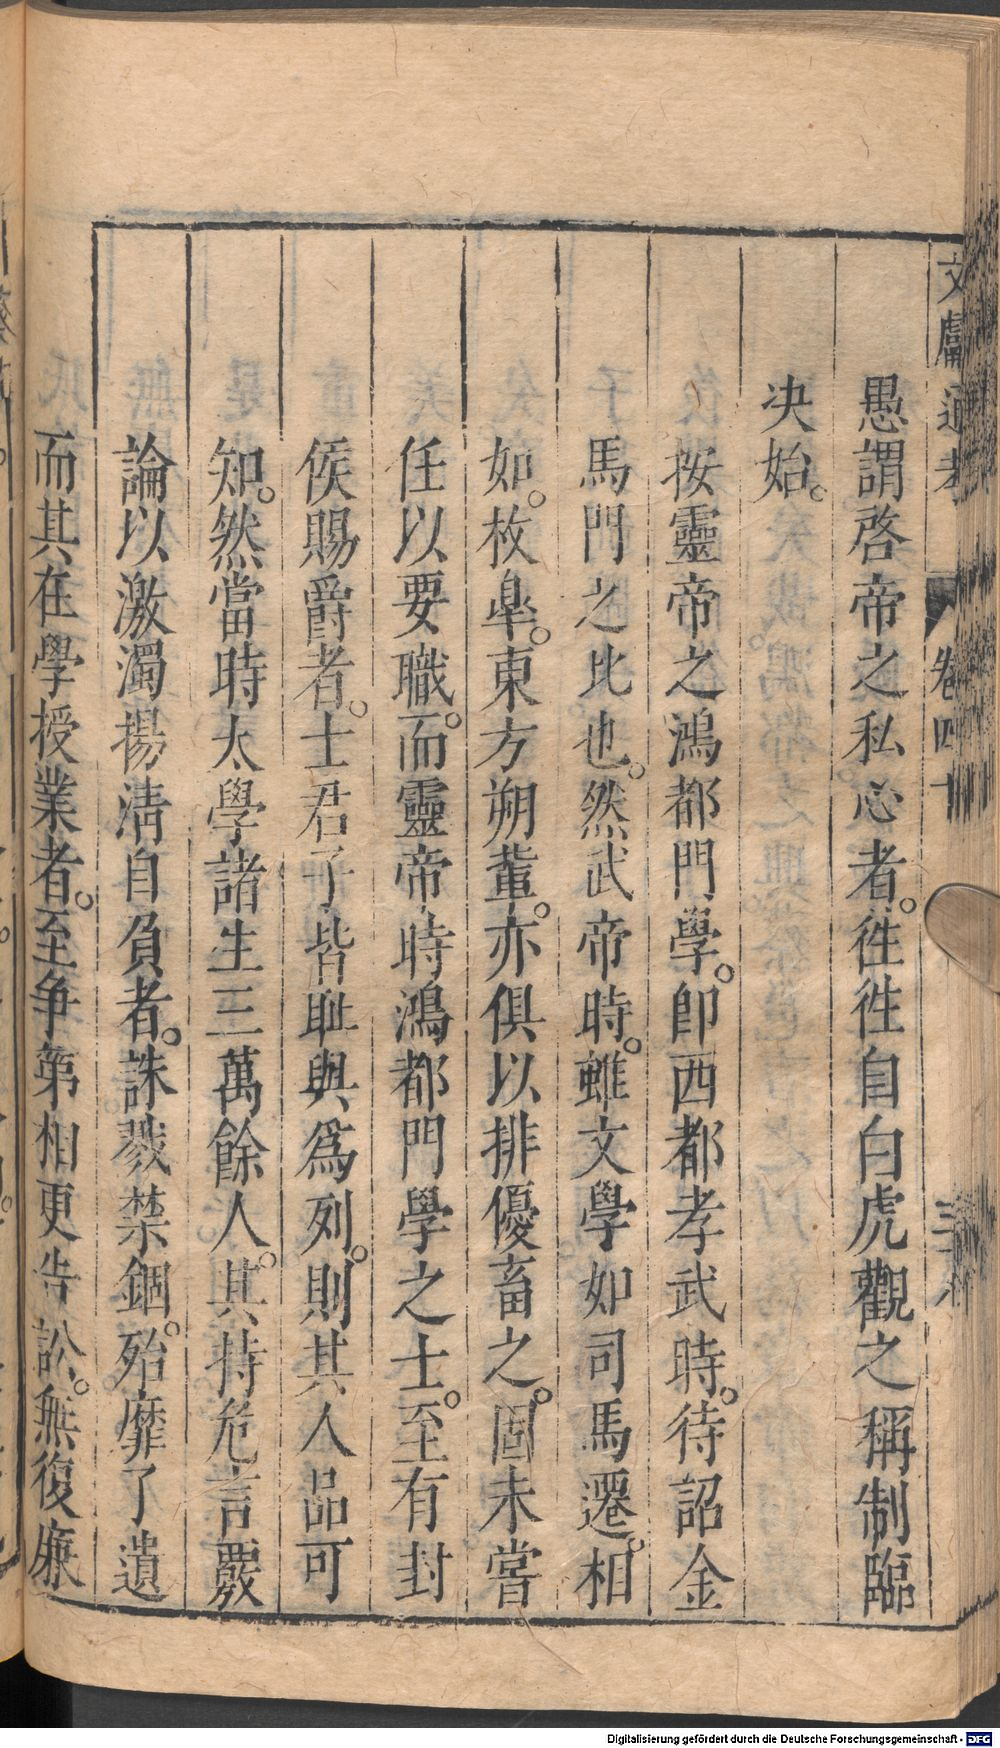 文獻通考　卷四十　三
愚謂啓帝之私心者。徃徃自白虎觀之稱制臨
决始。
按靈帝之鴻都門學。卽西都孝武時。待詔金
馬門之比也。然武帝時。雖文學如司馬遷。相
如。枚臯。東方朔輩。亦俱以排優畜之。固未嘗
任以要職。而靈帝時鴻都門學之士。至有封
侯賜爵者。士君子皆耻與爲列。則其人品可
知。然當時太學諸生三萬餘人。其持危言覈
論以激濁揚淸自負者。誅戮禁錮。殆靡孑遺
而其在學授業者。至争第相更告訟。無復廉
Digitalisierung gefördert durch die Deutsche Forschungsgemeinschaft - DFG